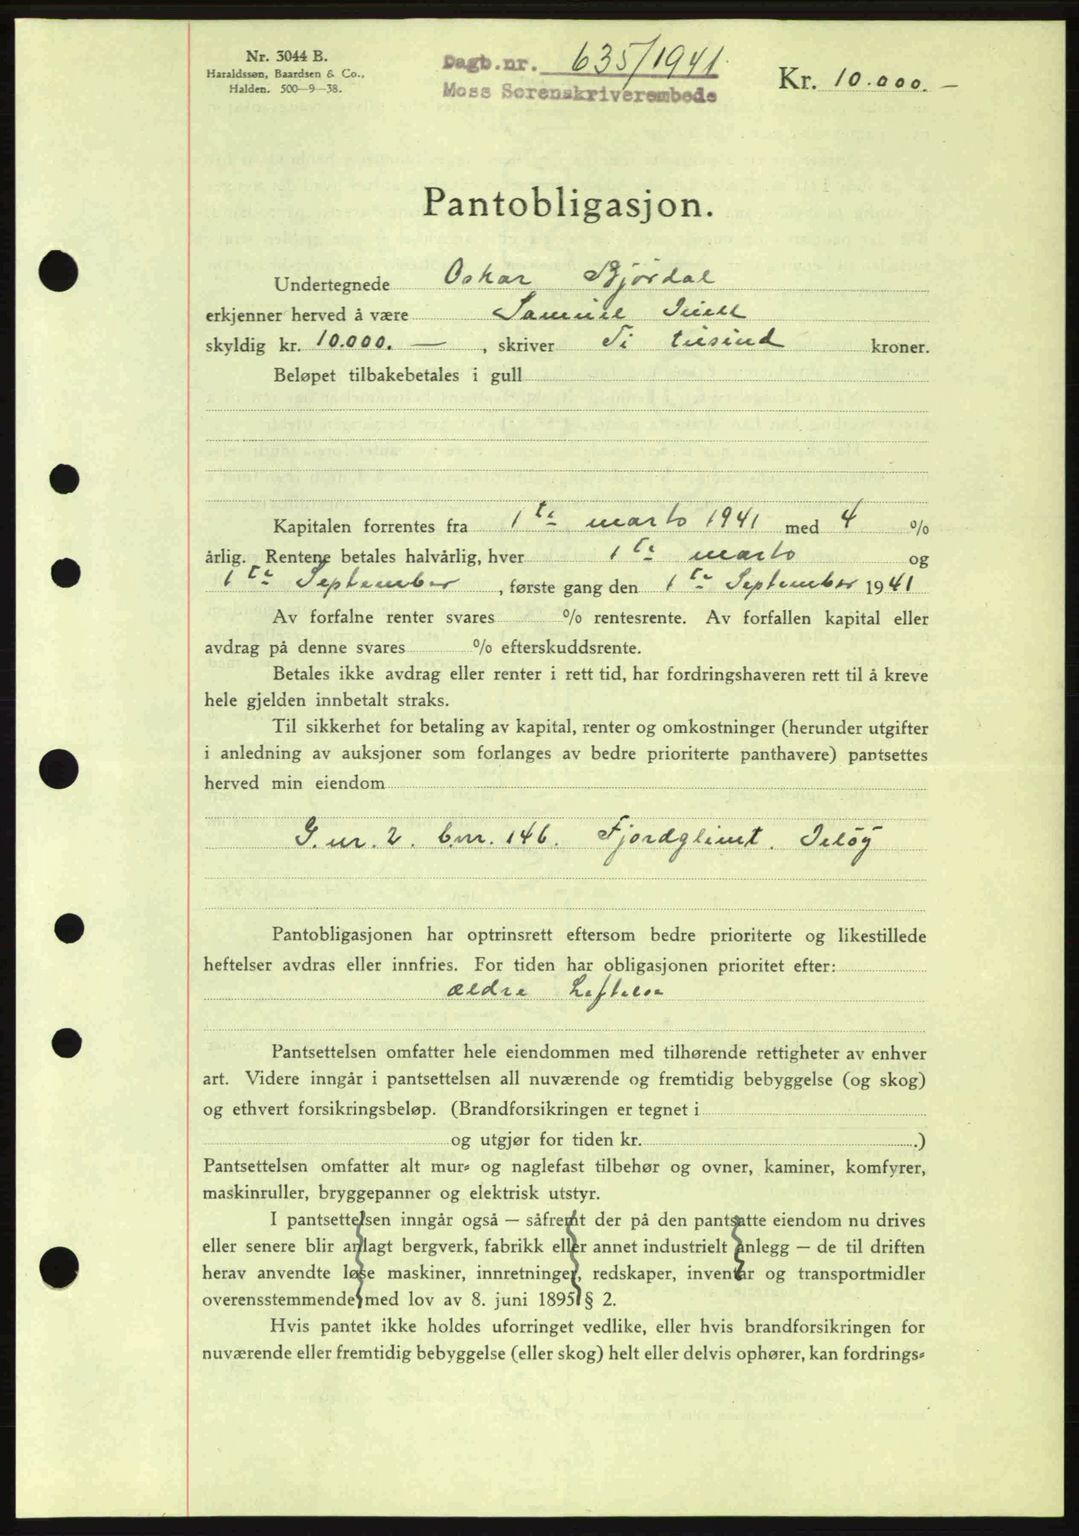 Nr. 3044 B.
Haraldssøn, Baardsen & Co.,
Halden. 500—9—38.
Dagb.nr. 635/1941
Moss Sorenskriverembede
Kr. 10.000.—
Pantobligasjon.
Undertegnede Oskar Bjørdal
erkjenner herved å være Samuel
skyldig kr. 10.000. — , skriver Ti tusind kroner.
Beløpet tilbakebetales i gull
Kapitalen forrentes fra 1ste marts 1941 med 4 %
årlig. Rentene betales halvårlig, hver 1ste marts og
1ste September , første gang den 1ste September 1941
Av forfalne renter svares % rentesrente. Av forfallen kapital eller
avdrag på denne svares % efterskuddsrente.
Betales ikke avdrag eller renter i rett tid, har fordringshaveren rett til å kreve
hele gjelden innbetalt straks.
Til sikkerhet for betaling av kapital, renter og omkostninger (herunder utgifter
i anledning av auksjoner som forlanges av bedre prioriterte panthavere) pantsettes
herved min eiendom
G.nr. 2. b.nr. 146. Fjordglimt. Jeløy
Pantobligasjonen har optrinsrett eftersom bedre prioriterte og likestillede
heftelser avdras eller innfries. For tiden har obligasjonen prioritet efter:
ældre heftelse
Pantsettelsen omfatter hele eiendommen med tilhørende rettigheter av enhver
art. Videre inngår i pantsettelsen all nuværende og fremtidig bebyggelse (og skog)
og ethvert forsikringsbeløp. (Brandforsikringen er tegnet i
og utgjør for tiden kr. .)
Pantsettelsen omfatter alt mur- og naglefast tilbehør og ovner, kaminer, komfyrer,
maskinruller, bryggepanner og elektrisk utstyr.
I pantsettelsen inngår også — såfremt der på den pantsatte eiendom nu drives
eller senere blir anlagt bergverk, fabrikk eller annet industrielt anlegg — de til driften
herav anvendte løse maskiner, innretninger, redskaper, inventar og transportmidler
overensstemmende med lov av 8. juni 1895 § 2.
Hvis pantet ikke holdes uforringet vedlike, eller hvis brandforsikringen for
nuværende eller fremtidig bebyggelse (eller skog) helt eller delvis ophører, kan fordrings-